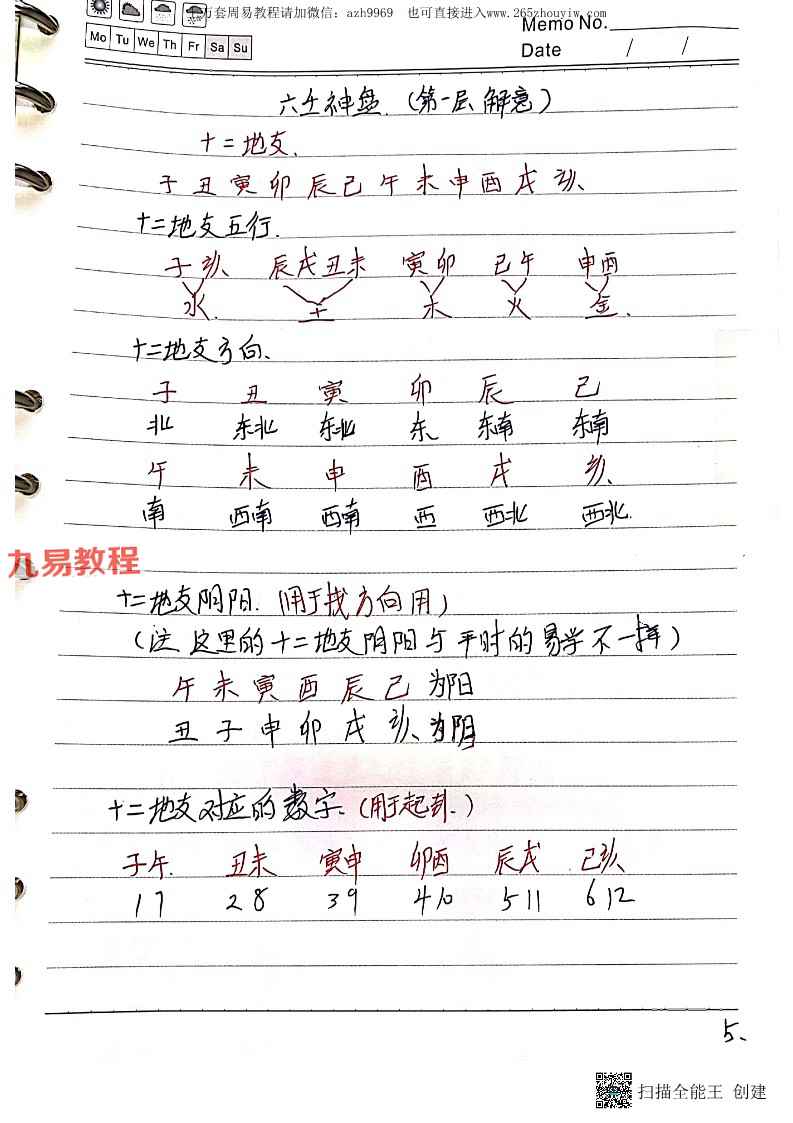 十万套周易教程请加微信：azh9969 也可直接进入www.265zhouyiw.com
Memo No.
Mo Tu We Th Fr Sa Su
Date / /
六壬神盘.（第一层 解意）
十二地支.
子 丑 寅 卯 辰 巳 午 未 申 酉 戌 亥、
十二地支五行.
子亥、 辰戌丑未 寅卯 巳午 申酉
水. 土 木 火 金.
十二地支方向.
子 丑 寅 卯 辰 巳
北 东北 东北 东 东南 东南
午 未 申 酉 戌 亥、
南 西南 西南 西 西北 西北.
九易教程
十二地支阴阳.（用于找方向用）
（注 这里的十二地支阴阳与平时的易学不一样）
午 未 寅 酉 辰 巳 为阳
丑 子 申 卯 戌 亥、为阴
十二地支对应的数字.（用于起卦.）
子午. 丑未 寅申 卯酉 辰戌 巳亥、
1 7 2 8 3 9 4 10 5 11 6 12
5、
扫描全能王 创建